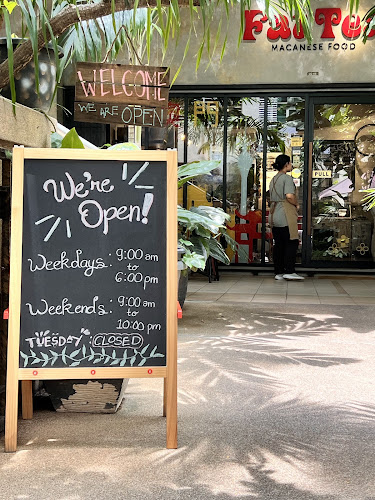 Fat Tea
MACANESE FOOD
WELCOME
WE ARE OPEN
PULL
We're
Open!
Weekdays: 9:00 am
to
6:00 pm
Weekends: 9:00 am
to
10:00 pm
TUESDAY: CLOSED